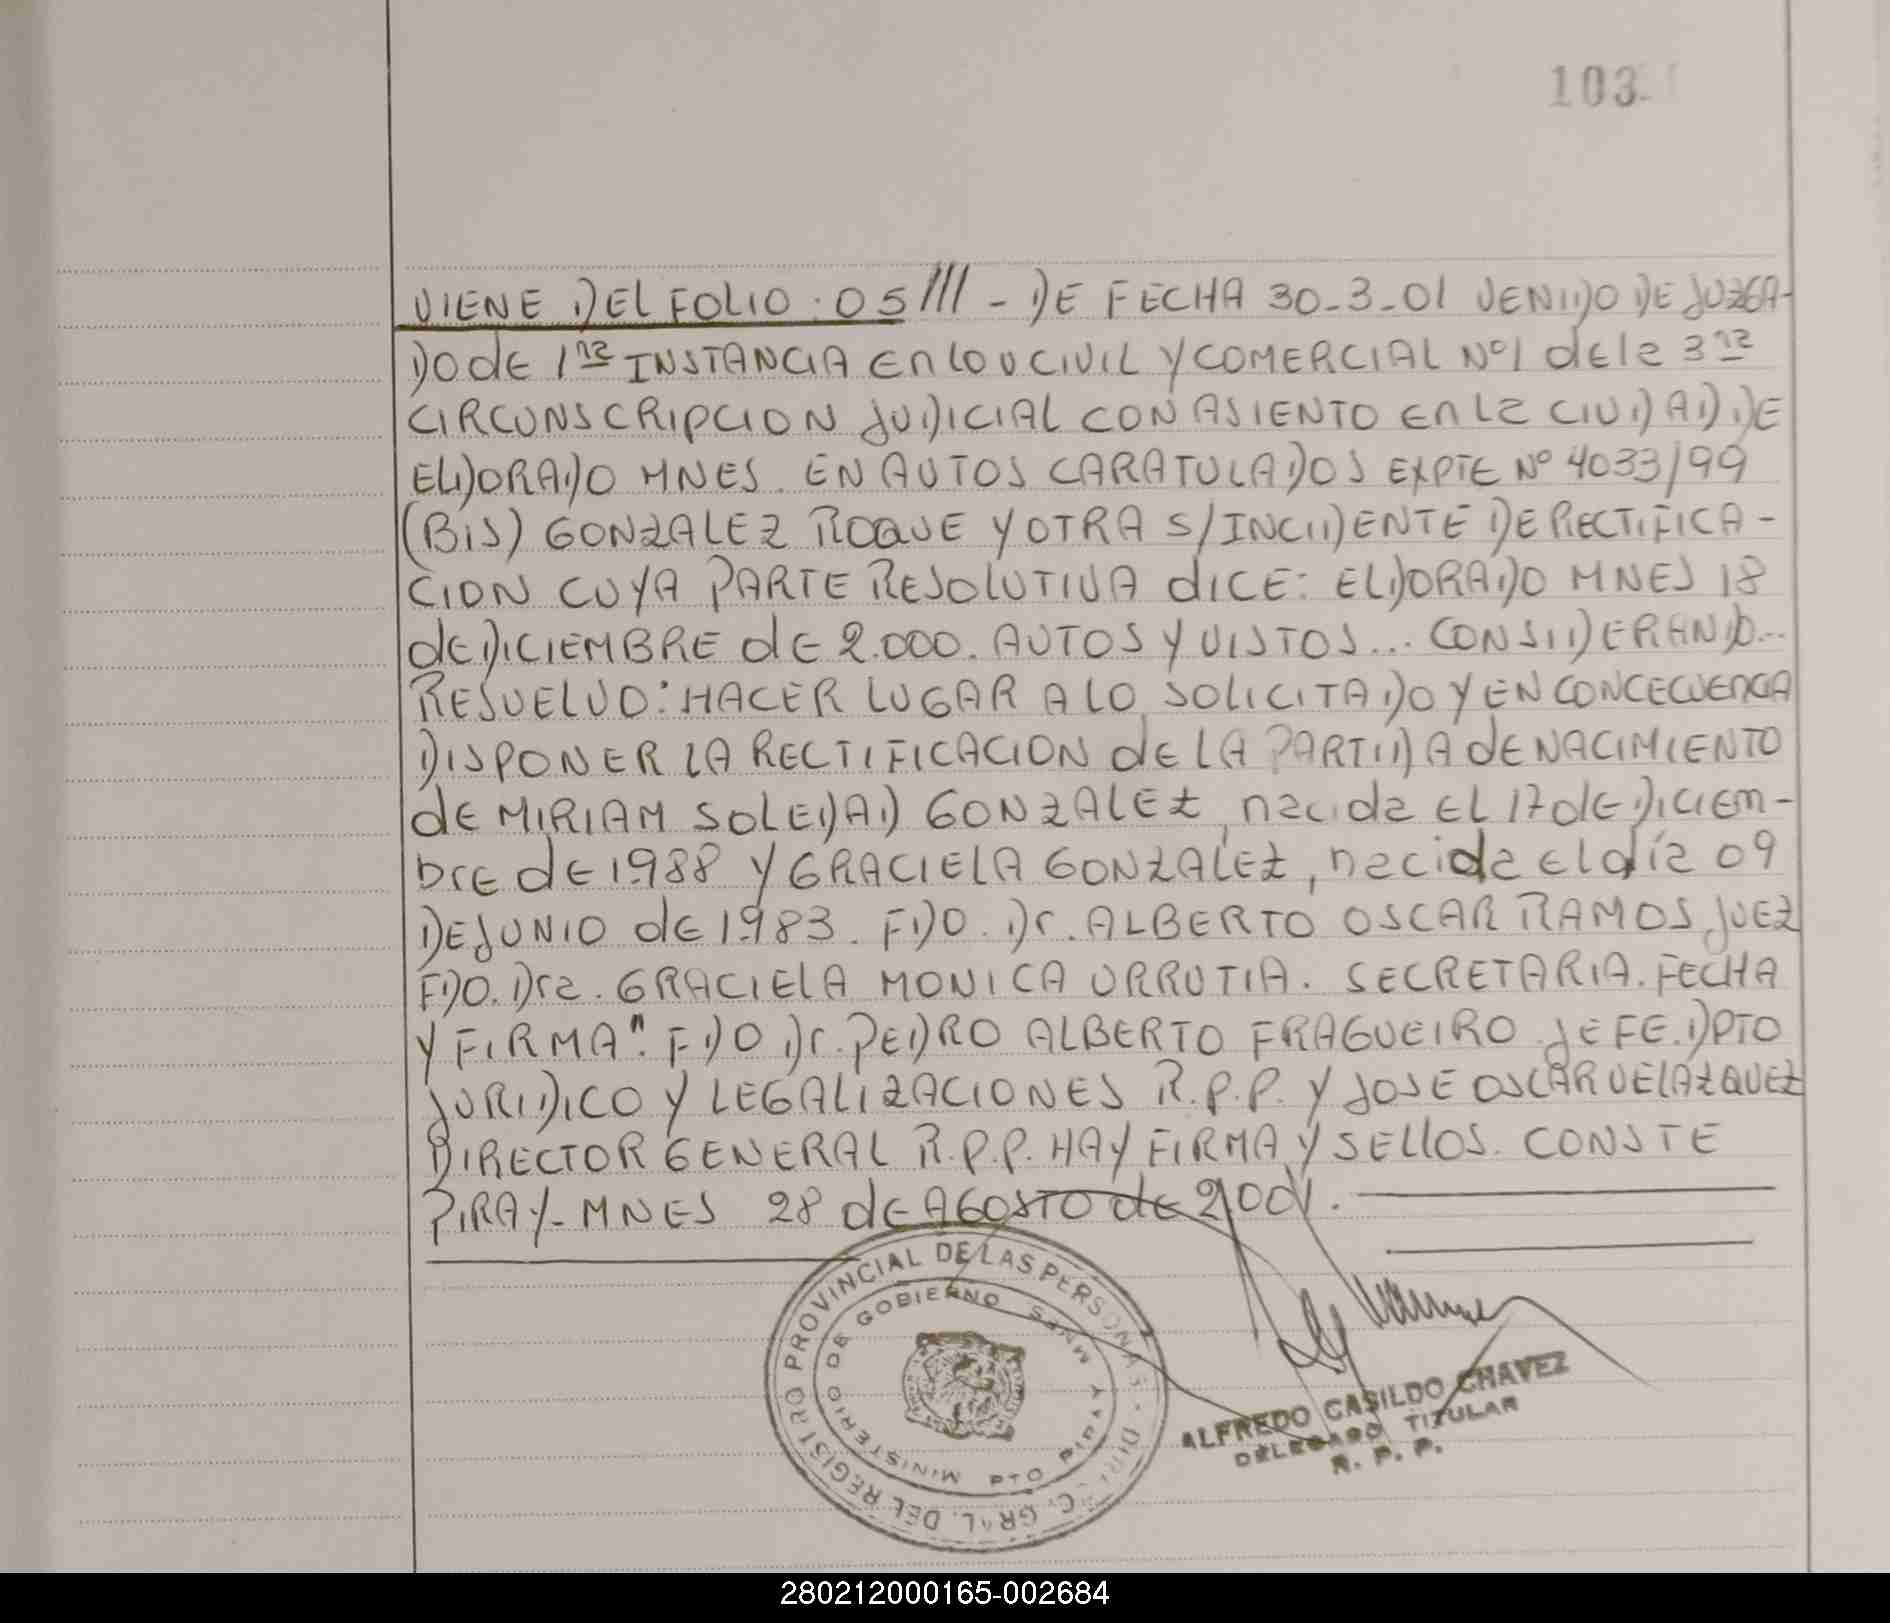 103
VIENE DEL FOLIO: 05 /// - DE FECHA 30-3-01 VENIDO DE JUZGA-
DO dE 1ra INSTANCIA En LO CIVIL Y COMERCIAL Nº1 dE la 3ra
CIRCUNSCRIPCION JUDICIAL CON ASIENTO En La CIUDAD DE
ELDORADO MNES. EN AUTOS CARATULADOS EXPTE Nº 4033/99
(BIS) GONZALEZ ROQUE Y OTRA S/INCIDENTE DE RECTIFICA-
CION CUYA PARTE RESOLUTIVA dICE: ELDORADO MNES 18
dE DICIEMBRE dE 2.000. AUTOS Y VISTOS... CONSIDERANDO...
RESUELVO: HACER LUGAR A LO SOLICITADO Y EN CONCECUENCIA
DISPONER LA RECTIFICACION dE LA PARTIDA dE NACIMIENTO
dE MIRIAM SOLEDAD GONZALEZ, nacida EL 17 dE DICIEM-
brE dE 1988 Y GRACIELA GONZALEZ, nacida El día 09
DE JUNIO dE 1983. FDO. Dr. ALBERTO OSCAR RAMOS JUEZ
FDO. Dra. GRACIELA MONICA URRUTIA. SECRETARIA. FECHA
Y FIRMA". FDO Dr. PEDRO ALBERTO FRAGUEIRO JEFE. DPTO
JURIDICO Y LEGALIZACIONES R.P.P. Y JOSE OSCAR VELAZQUEZ
DIRECTOR GENERAL R.P.P. HAY FIRMA Y SELLOS. CONSTE
PIRAY- MNES 28 dE AGOSTO dE 2.001.
DIREC. GRAL. DEL REGISTRO PROVINCIAL DE LAS PERSONAS
MINISTERIO DE GOBIERNO
PTO PIRAY MNES
ALFREDO CASILDO CHAVEZ
DELEGADO TITULAR
R. P. P.
280212000165-002684